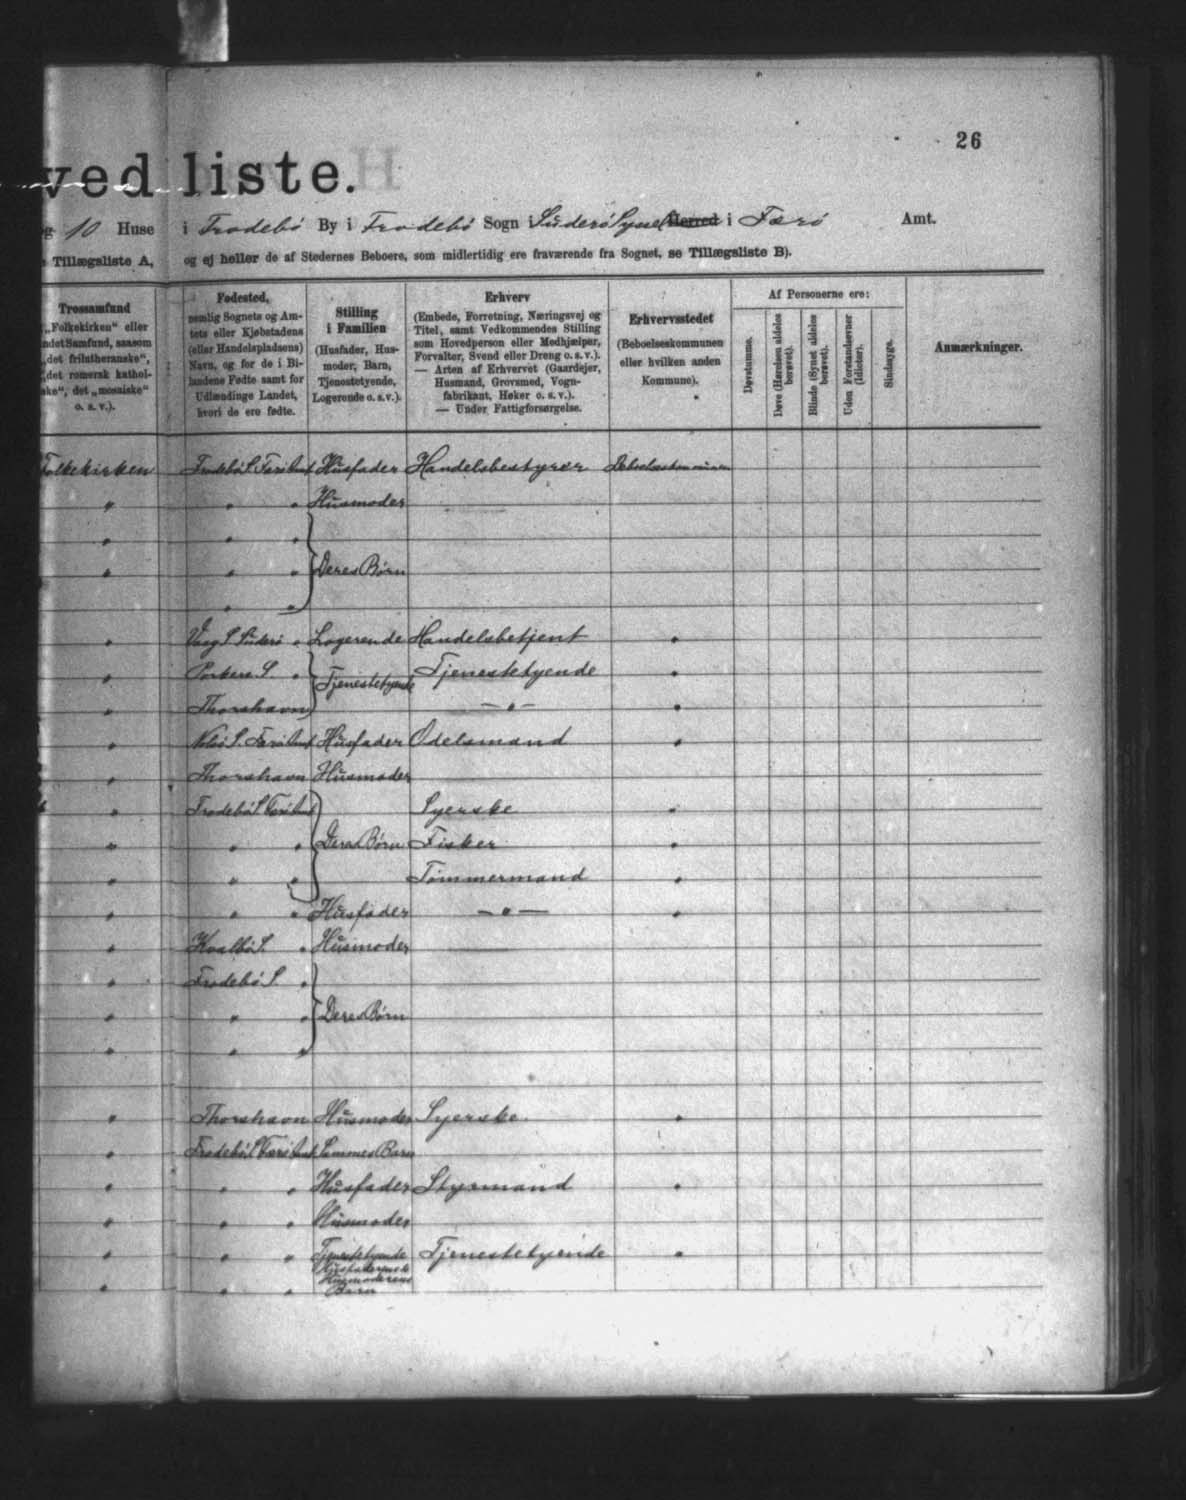 26
ved liste.
og 10 Huse i Frodebø By i Frodebø Sogn i Suderø Syssel Herred i Færø Amt.
Tillægsliste A, og ej heller de af Stedernes Beboere, som midlertidig ere fraværende fra Sognet, se Tillægsliste B).
Trossamfund
„Folkekirken" eller
ndet Samfund, saasom
„det frilutheranske",
„det romersk kathol-
ske", det „mosaiske"
o. s. v.).
Fødested,
nemlig Sognets og Am-
tets eller Kjøbstadens
(eller Handelspladsens)
Navn, og for de i Bi-
landene Fødte samt for
Udlændinge Landet,
hvori de ere fødte.
Stilling
i Familien
(Husfader, Hus-
moder, Barn,
Tjenestetyende,
Logerende o. s. v.).
Erhverv
(Embede, Forretning, Næringsvej og
Titel, samt Vedkommendes Stilling
som Hovedperson eller Medhjælper,
Forvalter, Svend eller Dreng o. s. v.).
— Arten af Erhvervet (Gaardejer,
Husmand, Grovsmed, Vogn-
fabrikant, Høker o. s. v.).
— Under Fattigforsørgelse.
Erhvervsstedet
(Beboelseskommunen
eller hvilken anden
Kommune).
Af Personerne ere:
Døvstumme.
Døve (Hørelsen aldeles
berøvet).
Blinde (Synet aldeles
berøvet).
Uden Forstandsevner
(Idioter).
Sindssyge.
Anmærkninger.
Folkekirken Frodebø S. Færø Amt Husfader Handelsbestyrer Beboelseskommunen
" " " Husmoder
" " "
" " " Deres Børn
" "
" Vaag S. Suderø " Logerende Handelsbetjent "
" Porkere S. " Tjenestetyende Tjenestetyende "
" Thorshavn — " — "
" Nolsø S. Færø Amt Husfader Odelsmand "
" Thorshavn Husmoder
" Frodebø S. Færø Amt Syerske "
" " " Deres Børn Fisker "
" " " Tømmermand "
" " " Husfader — " — "
" Kvalbø S. " Husmoder
" Frodebø S. "
" " " Deres Børn
" " "
" Thorshavn Husmoder Syerske "
" Frodebø S. Færø Amt Sammes Barn
" " " Husfader Styrmand "
" " " Husmoder
" " " Tjenestetyende Tjenestetyende "
" " " Husmoderens
Barn